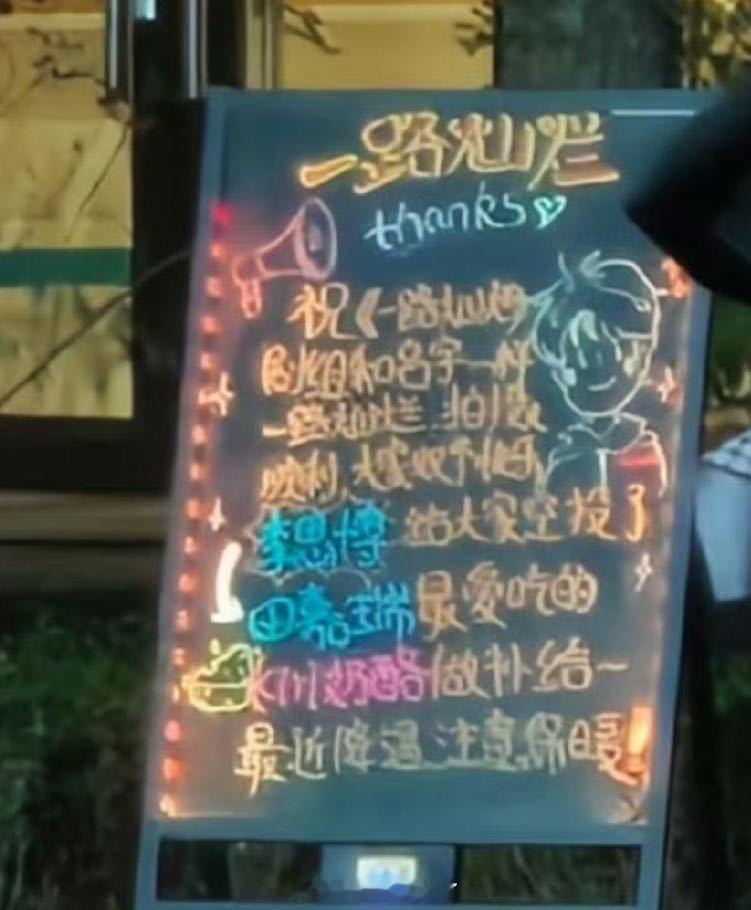 一路灿烂
thanks
祝《一路灿烂
剧组和名字一样
一路灿烂,拍摄
顺利,大家
李思博 给大家空投了
田嘉瑞 最爱吃的
奶酪做补给~
最近降温,注意保暖